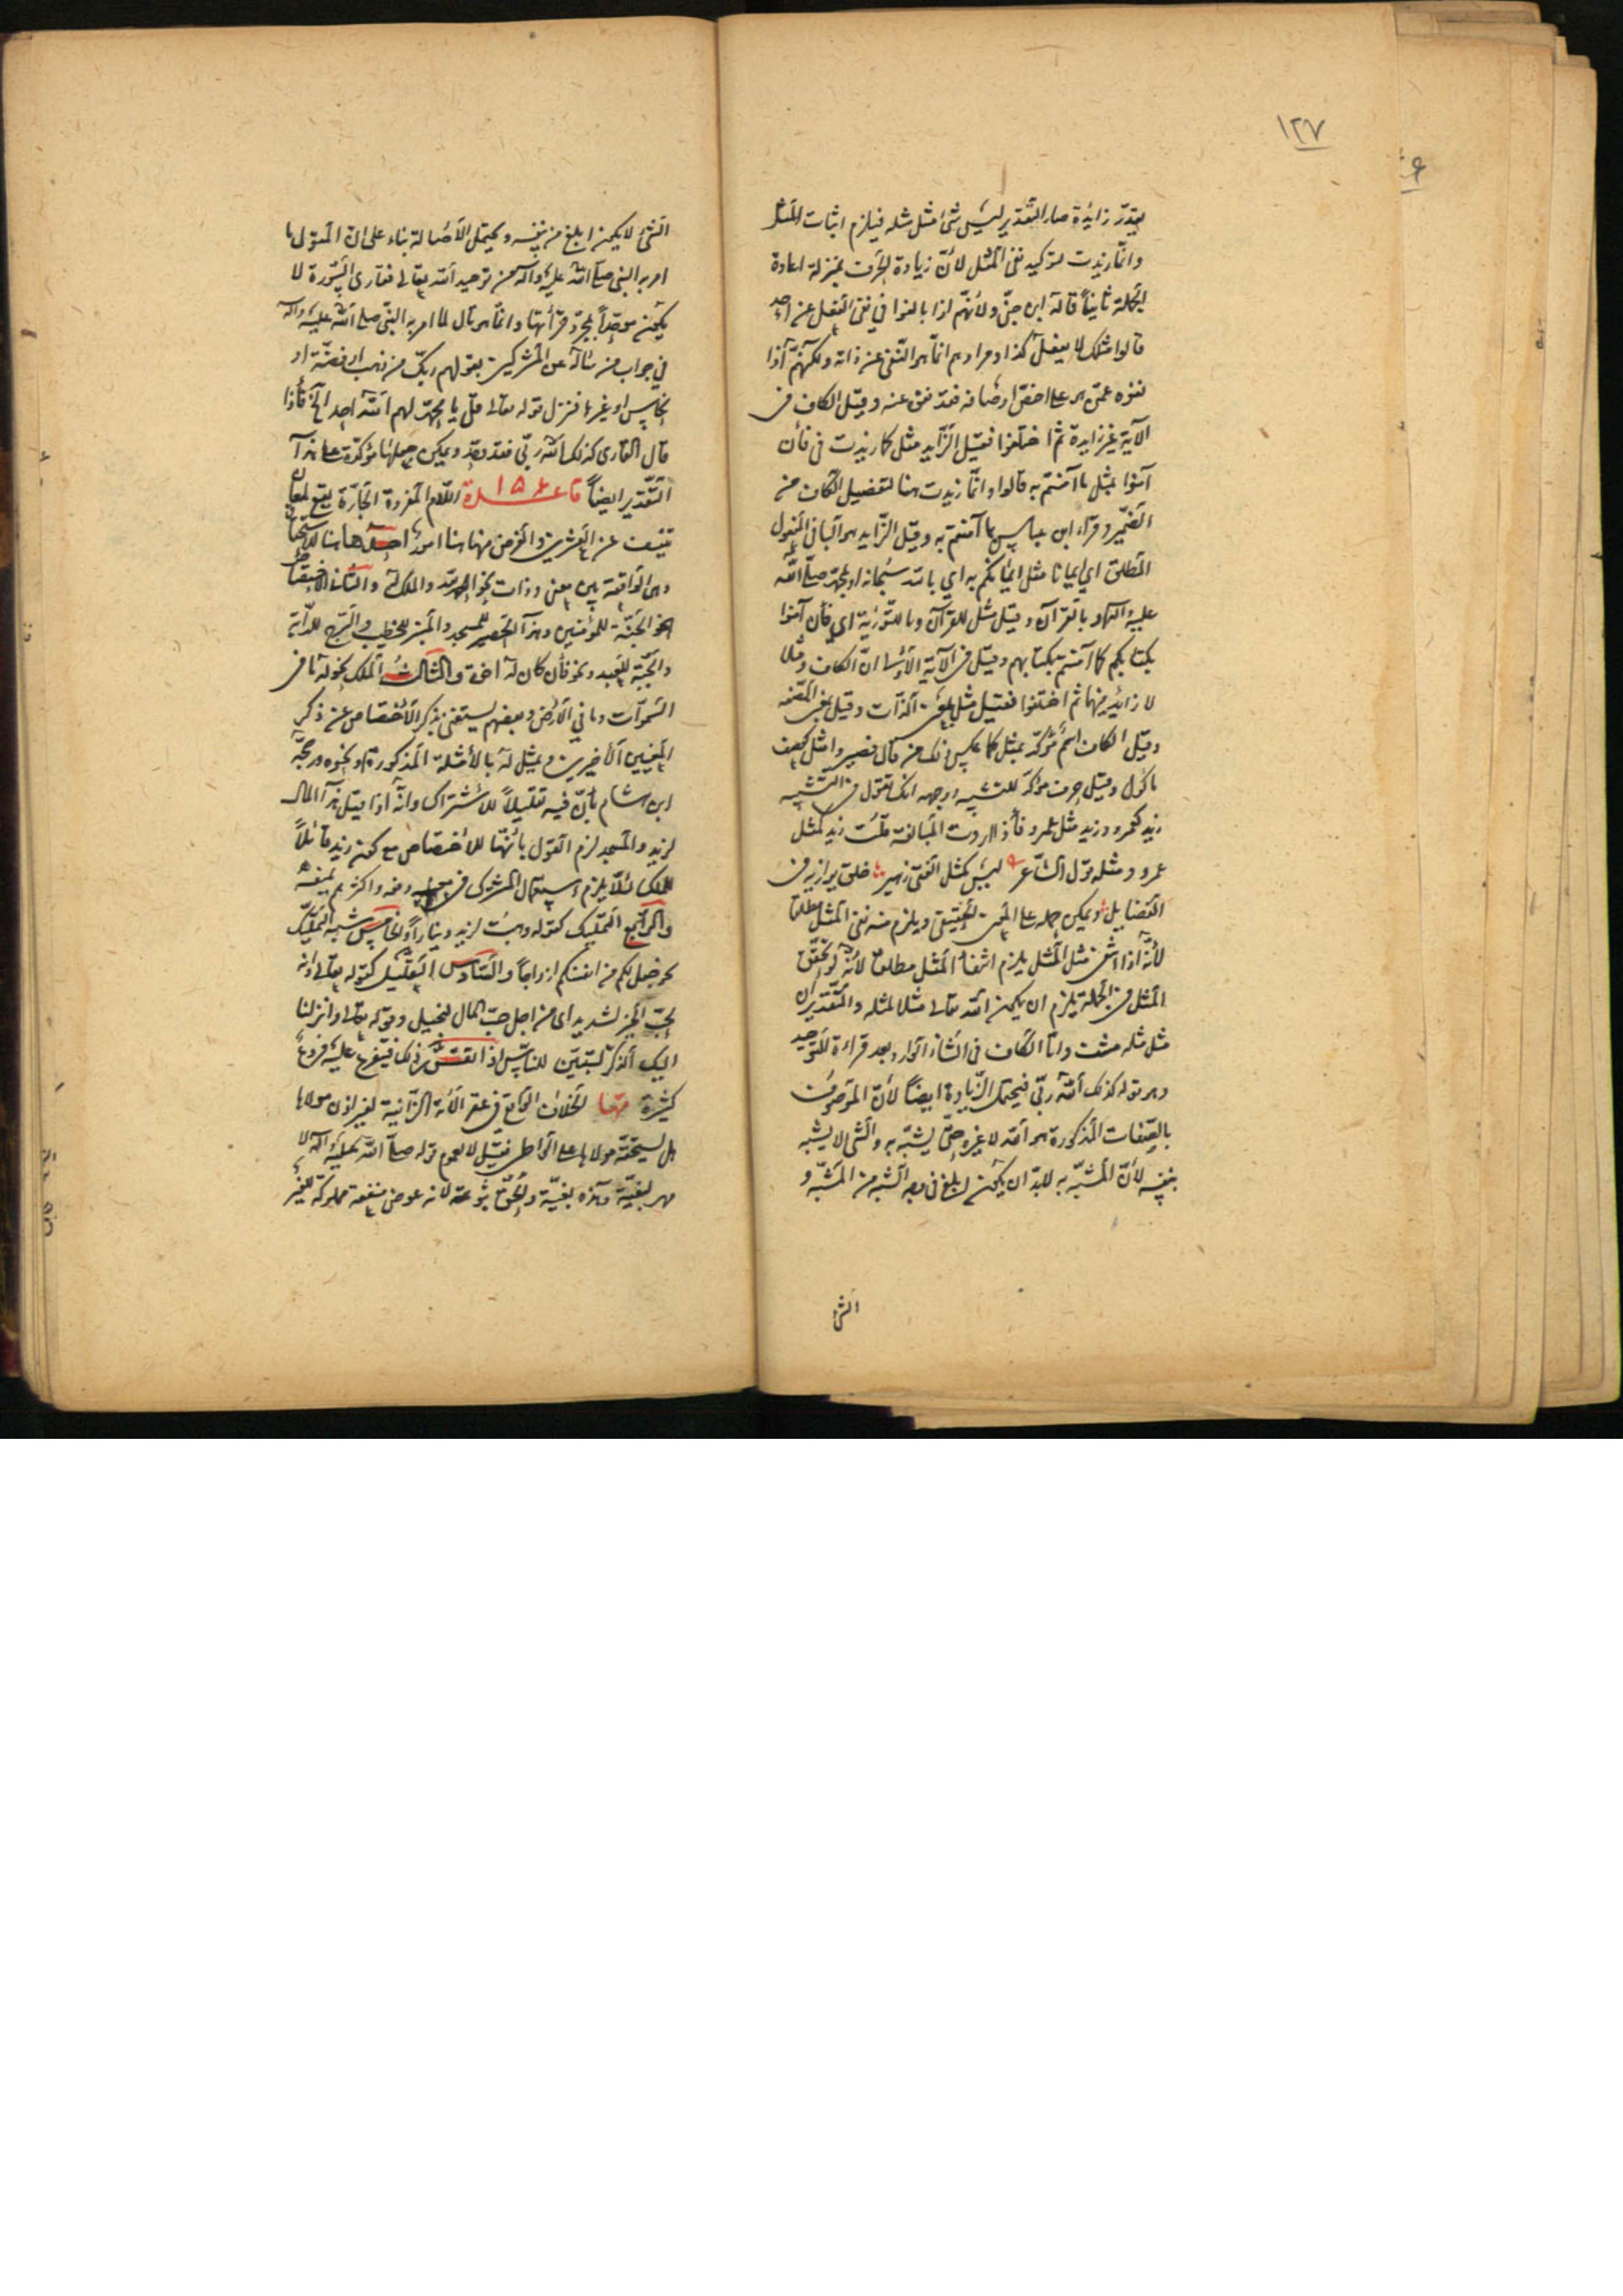 ١٢٧
يقدر زايدة صار التقدير ليس شئ مثل مثله فيلزم اثبات المثل
وانما زيدت لتوكيد نفى المثل لأن زيادة الحرف بمنزلة اعادة
الجملة ثانيا قاله ابن جنى ولأنهم اذا بالغوا في نفى الفعل عن احد
قالوا مثلك لا يفعل كذا ومرادهم انما هو النفى عن ذاته ولكنهم اذا
نفوه عمن هو على اخص اوصافه فقد نفى عنه وقيل الكاف فى
الآية غير زايدة ثم اختلفوا فقيل الزايد مثل كما زيدت فى فأن
آمنوا بمثل ما آمنتم به قالوا وانما زيدت هنا لتفصيل الكاف من
الضمير وقرأ ابن عباس بما آمنتم به وقيل الزايد هو الباء فى المفعول
المطلق اي ايمانا مثل ايمانكم به اي بالله سبحانه او بمحمد صلى الله
عليه وآله او بالقرآن وقيل مثل للقرآن وما للتورية اي فأن آمنوا
بكتابكم كما آمنتم بكتابهم وقيل فى الآية الأولى ان الكاف ومثلا
لا زائد منهما ثم اختلفوا فقيل مثل بمعنى الذات وقيل بمعنى الصفه
وقيل الكاف اسم مؤكد بمثل كما عكس ذلك من قال فصيروا مثل كعصف
مأكول وقيل حرف مؤكد للتشبيه ووجهه انك تقول فى التشبيه
زيد كعمرو وزيد مثل عمرو فأذا اردت المبالغة قلت زيد كمثل
عمرو ومثله قول الشاعر ليس كمثل الفتى زهير خلق يوازيه فى
الفضايل ويمكن حمله على المعنى الحقيقى ويلزم منه نفى المثل مطلقا
لأنه اذا انتفى مثل المثل يلزم انتفاء المثل مطلقا لأنه لو تحقق
المثل فى الجملة يلزم ان يكون الله تعالى مثلا لمثله والتقدير ان
مثل مثله منتف واما الكاف فى الشاذ الوارد بعد قراءة التوحيد
وهو قوله كذلك الله ربي فيحتمل الزيادة ايضا لأن الموصوف
بالصفات المذكورة هو الله لا غيره حتى يشبه به والشى لا يشبه
بنفسه لأن المشبه به لابد ان يكون ابلغ فى وجه الشبه من المشبه و
الشئ
الشئ لا يكون ابلغ من نفسه ويحتمل الأصالة بناء على ان المقول ما
امر به النبى صلى الله عليه وآله من توحيد الله تعالى فقارى السورة لا
يكون موحدا بمجرد قرأتها وانما هو تال لما امر به النبى صلى الله عليه وآله
فى جواب من سأله عن المشركين بقولهم ربك من ذهب او فضة او
نحاس او غيرها فنزل قوله تعالى قل يا محمد لهم الله احد الخ فأذا
قال القارى كذلك الله ربى فقد وحد ويمكن جعلها مؤكدة على هذا
التقدير ايضا قاعدة ١٥٤ اللام المفردة الجارة يقع لمعان
تنيف عن العشرين والغرض منها هنا امور احدها هنا للاستحقاق
وهى الواقعة بين معنى وذات نحو الحمد لله والملك لله والثانى الاختصاص
نحو الجنة للمؤمنين وهذا الحصير للمسجد والمنبر للخطيب والسرج للدابة
والجبة للعبد ونحو فأن كان له اخوة والثالث الملك نحو له ما فى
السموات وما فى الأرض وبعضهم يستغنى بذكر الأختصاص عن ذكر
المعنيين الأخيرين ويمثل له بالأمثلة المذكورة ونحوه ورجحه
ابن هشام بأن فيه تقليلا للأشتراك وانه اذا قيل هذا المال
لزيد والمسجد لزم القول بأنها للأختصاص مع كون زيد قابلا
للملك لئلا يلزم استعمال المشترك فى معنييه دفعة واكثرهم يمنعه
والرابع التمليك كقوله وهبت لزيد دينارا والخامس شبه التمليك
نحو جعل لكم من انفسكم ازواجا والسادس التعليل كقوله تعالى وانه
لحب الخير لشديد اى من اجل حب المال لبخيل وقوله تعالى وانزلنا
اليك الذكر لتبين للناس اذا تقرر ذلك فيتفرع عليه فروع
كثيرة منها الخلاف الواقع فى عقر الأمة الزانية لغير اذن مولاها
هل يستحقه مولاها على الواطى فقيل لا لعموم قوله صلى الله عليه وآله لا
مهر لبغى وهذه بغية والحق ثبوته لأنه عوض منفعة مملوكة للغير